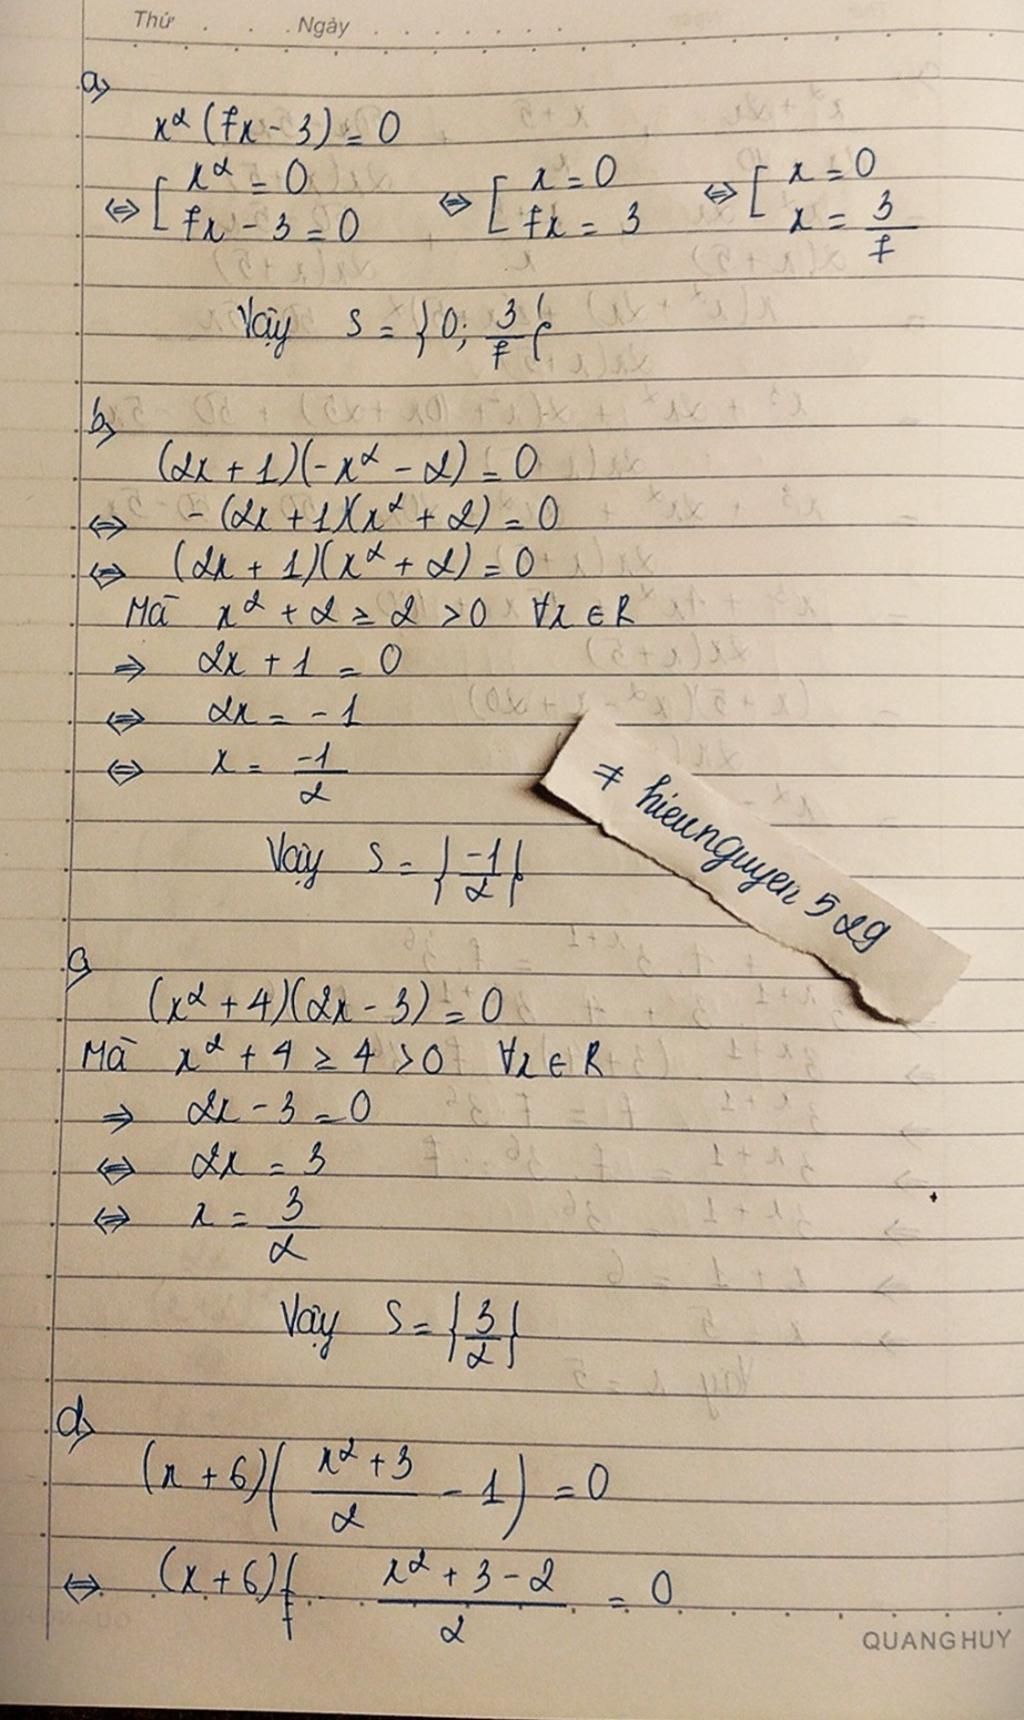 Thứ . . . Ngày . . . . . . .
a)
x² (7x - 3) = 0
⇔ [ x² = 0 ⇔ [ x = 0 ⇔ [ x = 0
7x - 3 = 0 7x = 3 x = 3/7
Vậy S = {0; 3/7}
b)
(2x + 1)(-x² - 2) = 0
⇔ - (2x + 1)(x² + 2) = 0
⇔ (2x + 1)(x² + 2) = 0
Mà x² + 2 ≥ 2 > 0 ∀x ∈ R
⇒ 2x + 1 = 0
⇔ 2x = -1
⇔ x = -1/2
Vậy S = {-1/2}
# hieunguyen 529
c)
(x² + 4)(2x - 3) = 0
Mà x² + 4 ≥ 4 > 0 ∀x ∈ R
⇒ 2x - 3 = 0
⇔ 2x = 3
⇔ x = 3/2
Vậy S = {3/2}
d)
(x + 6)( (x² + 3)/2 - 1 ) = 0
⇔ (x + 6) (x² + 3 - 2)/2 = 0
QUANG HUY